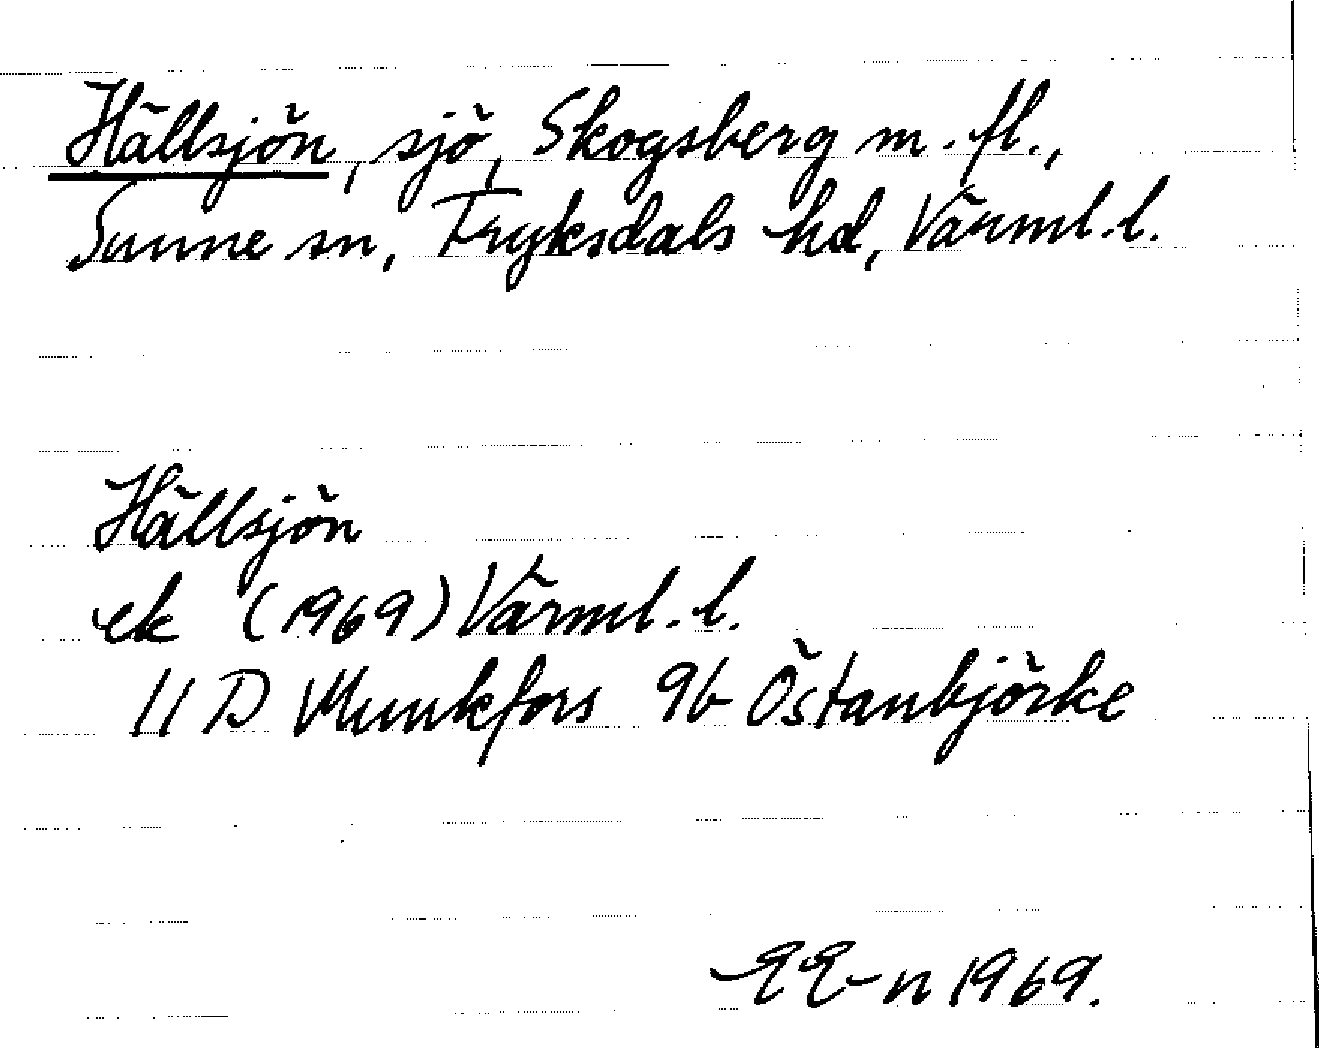 Hällsjön, sjö, Skogsberg m. fl.,
Sunne sn, Fryksdals hd, Värml. l.
Hällsjön
ek (1969) Värml. l.
11 D Munkfors 9b Östanbjörke
EE-n 1969.